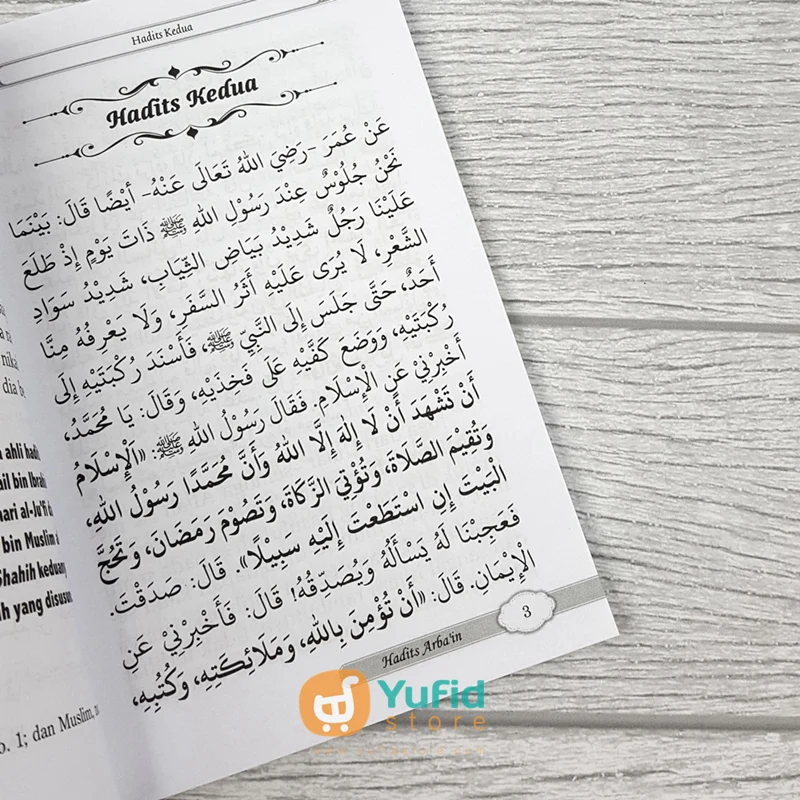 Hadits Kedua
Hadits Kedua
عَنْ عُمَرَ -رَضِيَ اللهُ تَعَالَى عَنْهُ- أَيْضًا قَالَ: بَيْنَمَا
نَحْنُ جُلُوْسٌ عِنْدَ رَسُوْلِ اللهِ ﷺ ذَاتَ يَوْمٍ إِذْ طَلَعَ
عَلَيْنَا رَجُلٌ شَدِيْدُ بَيَاضِ الثِّيَابِ، شَدِيْدُ سَوَادِ
الشَّعْرِ، لَا يُرَى عَلَيْهِ أَثَرُ السَّفَرِ، وَلَا يَعْرِفُهُ مِنَّا
أَحَدٌ، حَتَّى جَلَسَ إِلَى النَّبِيِّ ﷺ، فَأَسْنَدَ رُكْبَتَيْهِ إِلَى
رُكْبَتَيْهِ، وَوَضَعَ كَفَّيْهِ عَلَى فَخِذَيْهِ، وَقَالَ: يَا مُحَمَّدُ،
أَخْبِرْنِيْ عَنِ الْإِسْلَامِ. فَقَالَ رَسُوْلُ اللهِ ﷺ: «اَلْإِسْلَامُ
أَنْ تَشْهَدَ أَنْ لَا إِلٰهَ إِلَّا اللهُ وَأَنَّ مُحَمَّدًا رَسُوْلُ اللهِ،
وَتُقِيْمَ الصَّلَاةَ، وَتُؤْتِيَ الزَّكَاةَ، وَتَصُوْمَ رَمَضَانَ، وَتَحُجَّ
الْبَيْتَ إِنِ اسْتَطَعْتَ إِلَيْهِ سَبِيْلًا». قَالَ: صَدَقْتَ.
فَعَجِبْنَا لَهُ يَسْأَلُهُ وَيُصَدِّقُهُ! قَالَ: فَأَخْبِرْنِيْ عَنِ
الْإِيْمَانِ. قَالَ: «أَنْ تُؤْمِنَ بِاللهِ، وَمَلَائِكَتِهِ، وَكُتُبِهِ،
Hadits Arba'in 3
nikal
dia b
ahli hadi
ail bin Ibrahi
ari al-Ju'fi d
bin Muslim
Shahih keduan
h yang disusu
o. 1; dan Muslim,
Yufid
store